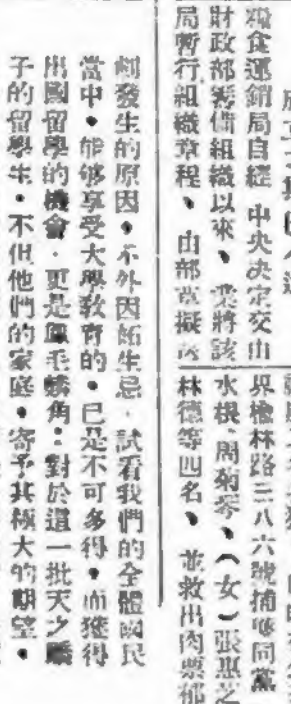 糧食運銷局自經 中央决定交由
財政部籌備組織以來、業將該
局暫行組織章程、由部草擬
界檢林路三八六號捕獲同黨
水根、周菊琴、(女)張惠芝
林德等四名、並救出肉票郁
劇發生的原因・不外因妬生忌・試看我們的全體國民
當中・能够享受大學敎育的・已是不可多得・而獲得
出國留學的機會・更是鳳毛麟角：對於這一批天之驕
子的留學生・不但他們的家庭・寄予其極大的期望・